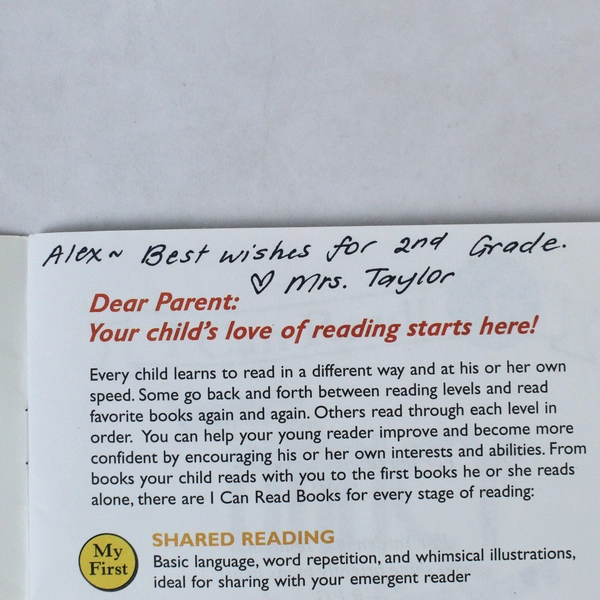 Alex~ Best wishes for 2nd Grade.
♡ Mrs. Taylor
Dear Parent:
Your child's love of reading starts here!
Every child learns to read in a different way and at his or her own
speed. Some go back and forth between reading levels and read
favorite books again and again. Others read through each level in
order. You can help your young reader improve and become more
confident by encouraging his or her own interests and abilities. From
books your child reads with you to the first books he or she reads
alone, there are I Can Read Books for every stage of reading:
My
First
SHARED READING
Basic language, word repetition, and whimsical illustrations,
ideal for sharing with your emergent reader